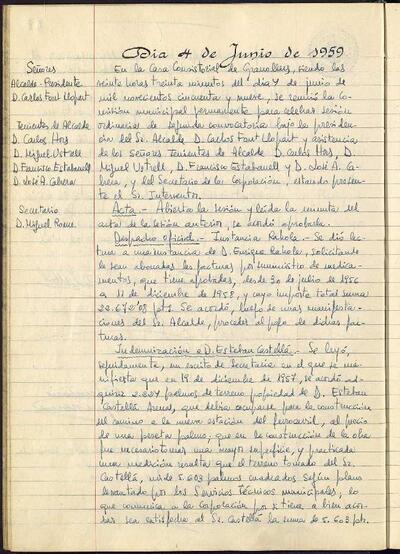 Dia 4 de Junio de 1959
Señores
Alcalde-Presidente
D. Carlos Font Llopart
Tenientes de Alcalde
D. Carlos Hors
D. Miguel Ustrell
D. Francisco Estabanell
D. José A. Cabrera
Secretario
D. Miguel Roene.
En la Casa Consistorial de Granollers, siendo las
veinte horas treinta minutos del día 4 de junio de
mil novecientos cincuenta y nueve, se reunió la co-
misión municipal permanente para celebrar sesión
ordinaria de segunda convocatoria bajo la presiden-
cia del Sr. Alcalde D. Carlos Font Llopart y asistencia
de los Señores Tenientes de Alcalde D. Carlos Hors, D.
Miguel Ustrell, D. Francisco Estabanell y D. José A. Ca-
brera, y del Secretario de la Corporación, estando presen-
te el Sr. Interventor.
Acta.- Abierta la sesión y leída la minuta del
acta de la sesión anterior, se acordó aprobarla.
Despacho oficial.- Instancia Ràhola.- Se dió lec-
tura a una instancia de D. Enrique Rahola, solicitando
le sean abonadas las facturas por suministro de medica-
mentos, que tiene aprobadas, desde 30 de julio de 1956
a 11 de diciembre de 1958, y cuyo importe total suma
22.672'05 pts. Se acordó, luego de unas manifesta-
ciones del Sr. Alcalde, proceder al pago de dichas fac-
turas.
Indemnización a D. Esteban Castellá.- Se leyó,
seguidamente, un escrito de Secretaría en el que se ma-
nifiesta que en 19 de diciembre de 1957, se acordó ad-
quirir 2.827 palmos de terreno propiedad de D. Esteban
Castellá Arenas, que debía ocuparse para la construcción
del camino a la nueva estación del ferrocarril, al precio
de una peseta palmo; que en la construcción de la obra
fue necesario tomar una mayor superficie, y practicada
una medición resulta que el terreno tomado del Sr.
Castellá, mide 5.603 palmos cuadrados según plano
levantado por los Servicios Técnicos municipales, lo
que comunica a la Corporación por si tiene a bien acor-
dar sea satisfecha al Sr. Castellá la suma de 5.603 pts.